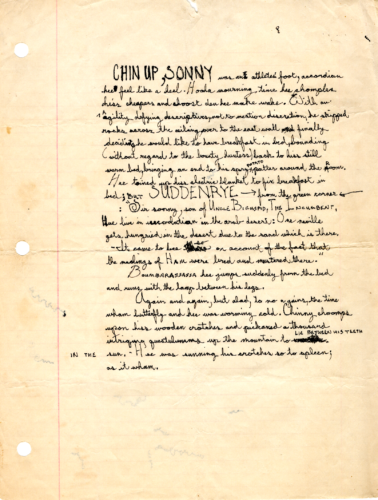 8
CHIN UP, SONNY was an athleted foot, accordian
hee feel like a deal. Hooka mourning time hee shomplea
hiss chappers and shoost den hee matre wake. With an
agility defying descriptives, not to mention discretion, he stripped
rocks across the ailing, over to the east wall and finally
deciding he would like to have breakfast in bed, bounding
without regard to the bounty busters back to his still
warm bed, bringing an end to his spray patter around the room.
Hee tuned up his electric blanket to fix breakfast
bed; BRT SUDDENRYE → from the green corner
: "Oir sonny, son of Uncle Bignord, The Incumbent,
Hae liv in assordian in the arab desert: One neville
gets hangried in the desert due to the sand which is there.
—It came to bee on account of the fact that
the madings of Ham were bred and mustered there."
Boumbarazzania hee jumps suddenly from the bed
and rung with the lamp between his legs.
Again and again, but alad, to no agains, the time
wham butterfly and hee was worming cold. Chinny chomps
upon his wooden crotches and pickened a thousand
LIE BETWEEN HIS TEETH
intriging up the mountain to
IN THE sun. - Hee was sunning his crotches so to spleen;
as it wham.